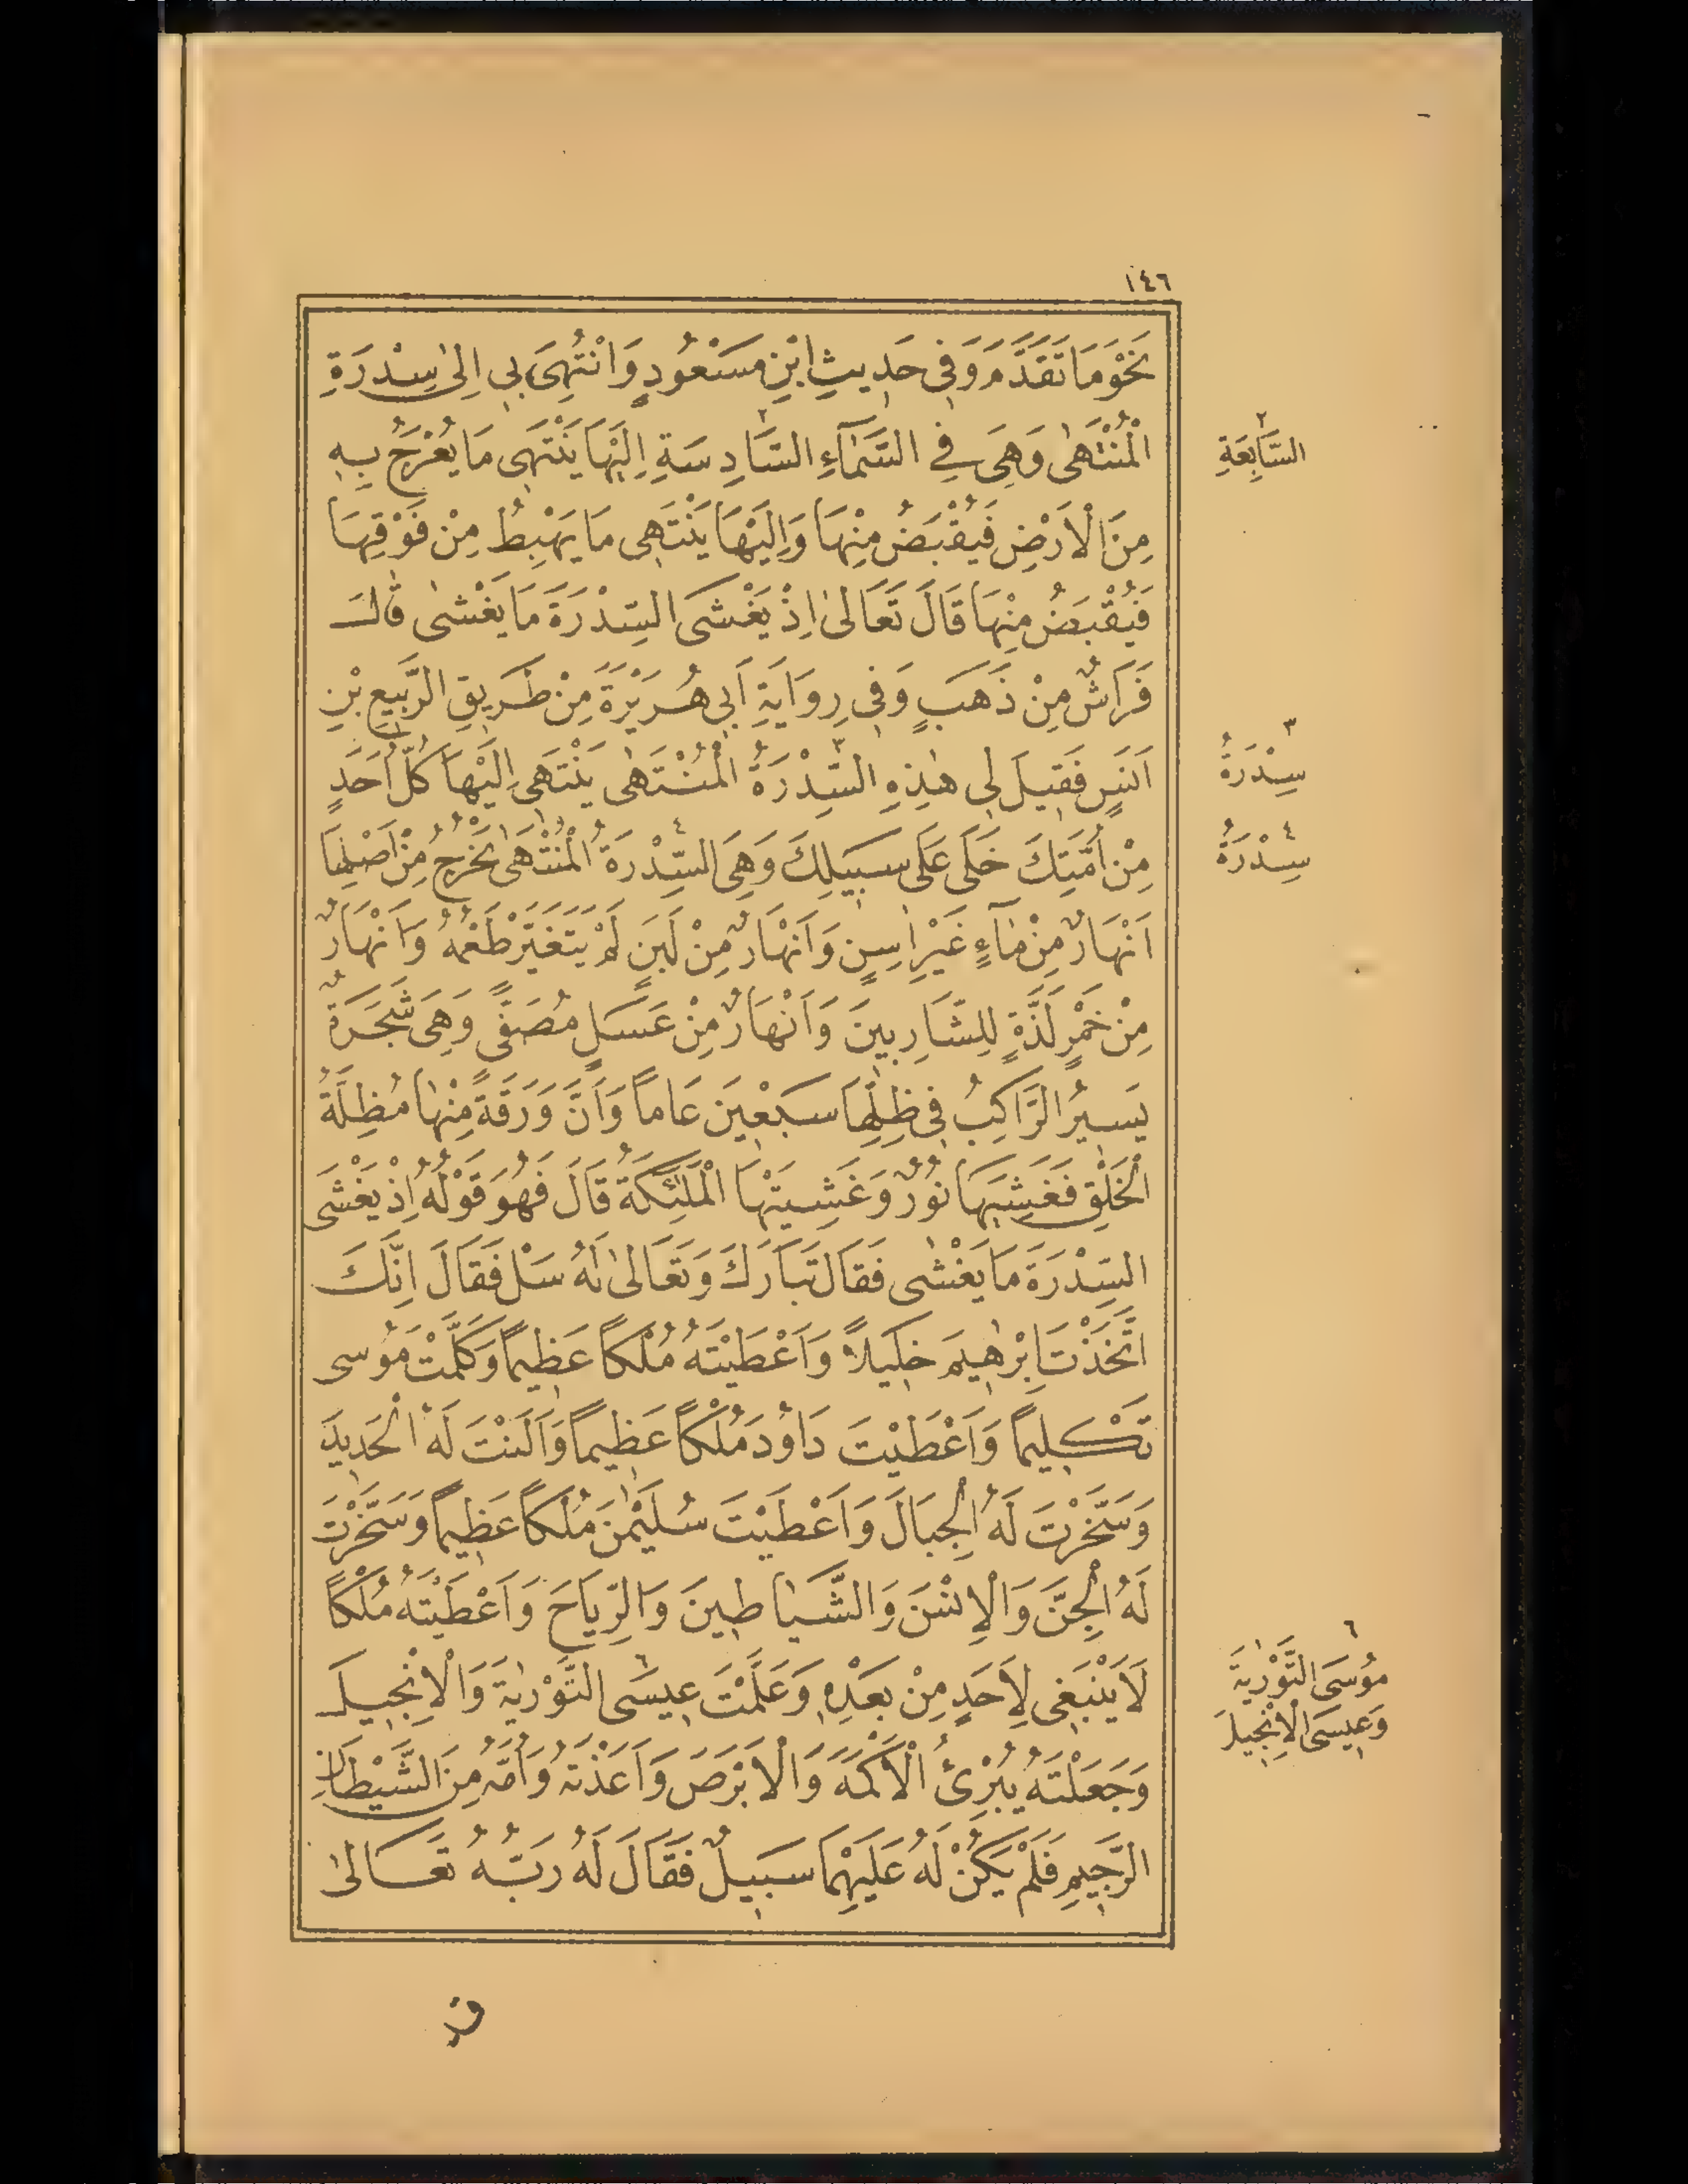 ١٤٦
نَحْوَ مَا تَقَدَّمَ وَفِي حَدِيثِ ابْنِ مَسْعُودٍ وَانْتُهِيَ بِي اِلىٰ سِدْرَةِ
الْمُنْتَهٰى وَهِيَ فِي السَّمَآءِ السَّادِسَةِ اِلَيْهَا يَنْتَهِى مَا يُعْرَجُ بِهِ
٢
السَّابِعَةِ
مِنَ الْاَرْضِ فَيُقْبَضُ مِنْهَا وَاِلَيْهَا يَنْتَهِى مَا يَهْبِطُ مِنْ فَوْقِهَا
فَيُقْبَضُ مِنْهَا قَالَ تَعَالىٰ اِذْ يَغْشَى السِّدْرَةَ مَا يَغْشٰى قَالَ
فَرَاشٌ مِنْ ذَهَبٍ وَفِي رِوَايَةِ اَبِي هُرَيْرَةَ مِنْ طَرِيقِ الرَّبِيعِ بْنِ
اَنَسٍ فَقِيلَ لِي هٰذِهِ السِّدْرَةُ الْمُنْتَهٰى يَنْتَهِى اِلَيْهَا كُلُّ اَحَدٍ
٣
سِدْرَةُ
مِنْ اُمَّتِكَ خَلَى عَلَى سَبِيلِكَ وَهِيَ السِّدْرَةُ الْمُنْتَهٰى يَخْرُجُ مِنْ اَصْلِهَا
٤
سِدْرَةُ
اَنْهَارٌ مِنْ مَآءٍ غَيْرِ اٰسِنٍ وَاَنْهَارٌ مِنْ لَبَنٍ لَمْ يَتَغَيَّرْ طَعْمُهُ وَاَنْهَارٌ
مِنْ خَمْرٍ لَذَّةٍ لِلشَّارِبِينَ وَاَنْهَارٌ مِنْ عَسَلٍ مُصَفًّى وَهِيَ شَجَرَةٌ
يَسِيرُ الرَّاكِبُ فِي ظِلِّهَا سَبْعِينَ عَاماً وَاَنَّ وَرَقَةً مِنْهَا مُظِلَّةُ
الْخَلْقِ فَغَشِيَهَا نُورٌ وَغَشِيَتْهَا الْمَلٰئِكَةُ قَالَ فَهُوَ قَوْلُهُ اِذْ يَغْشَى
السِّدْرَةَ مَا يَغْشٰى فَقَالَ تَبَارَكَ وَتَعَالىٰ لَهُ سَلْ فَقَالَ اِنَّكَ
اتَّخَذْتَ اِبْرٰهِيمَ خَلِيلاً وَاَعْطَيْتَهُ مُلْكاً عَظِيماً وَكَلَّمْتَ مُوسى
تَكْلِيماً وَاَعْطَيْتَ دَاوُدَ مُلْكاً عَظِيماً وَاَلَنْتَ لَهُ الْحَدِيدَ
وَسَخَّرْتَ لَهُ الْجِبَالَ وَاَعْطَيْتَ سُلَيْمٰنَ مُلْكاً عَظِيماً وَسَخَّرْتَ
لَهُ الْجِنَّ وَالْاِنْسَ وَالشَّيَاطِينَ وَالرِّيَاحَ وَاَعْطَيْتَهُ مُلْكاً
لَا يَنْبَغِي لِاَحَدٍ مِنْ بَعْدِهِ وَعَلَّمْتَ عِيسَى التَّوْرٰيةَ وَالْاِنْجِيلَ
٦
مُوسَى التَّوْرٰيةَ
وَعِيسَى الْاِنْجِيلَ
وَجَعَلْتَهُ يُبْرِئُ الْاَكْمَهَ وَالْاَبْرَصَ وَاَعَذْتَهُ وَاُمَّهُ مِنَ الشَّيْطَانِ
الرَّجِيمِ فَلَمْ يَكُنْ لَهُ عَلَيْهِمَا سَبِيلٌ فَقَالَ لَهُ رَبُّهُ تَعَالىٰ